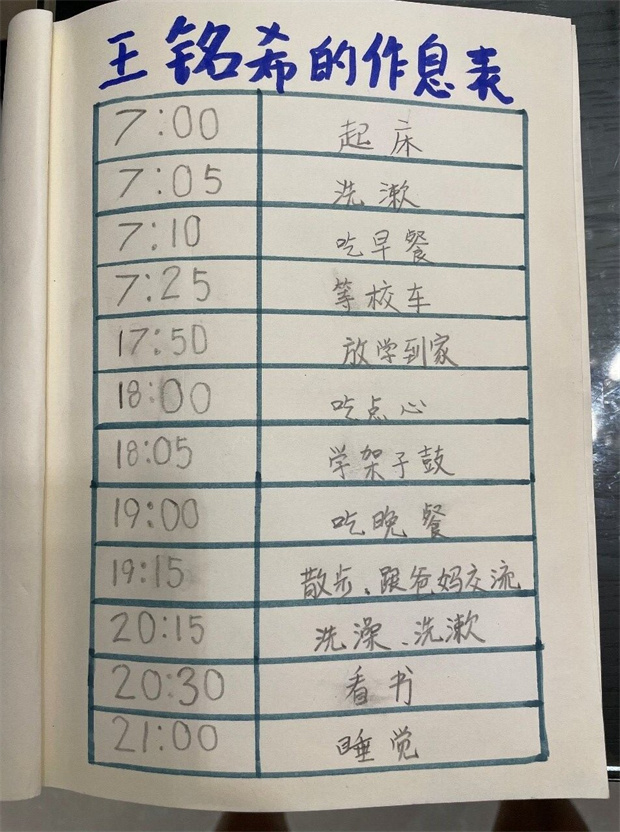 王铭希的作息表
7:00 起床
7:05 洗漱
7:10 吃早餐
7:25 等校车
17:50 放学到家
18:00 吃点心
18:05 学架子鼓
19:00 吃晚餐
19:15 散步、跟爸妈交流
20:15 洗澡、洗漱
20:30 看书
21:00 睡觉